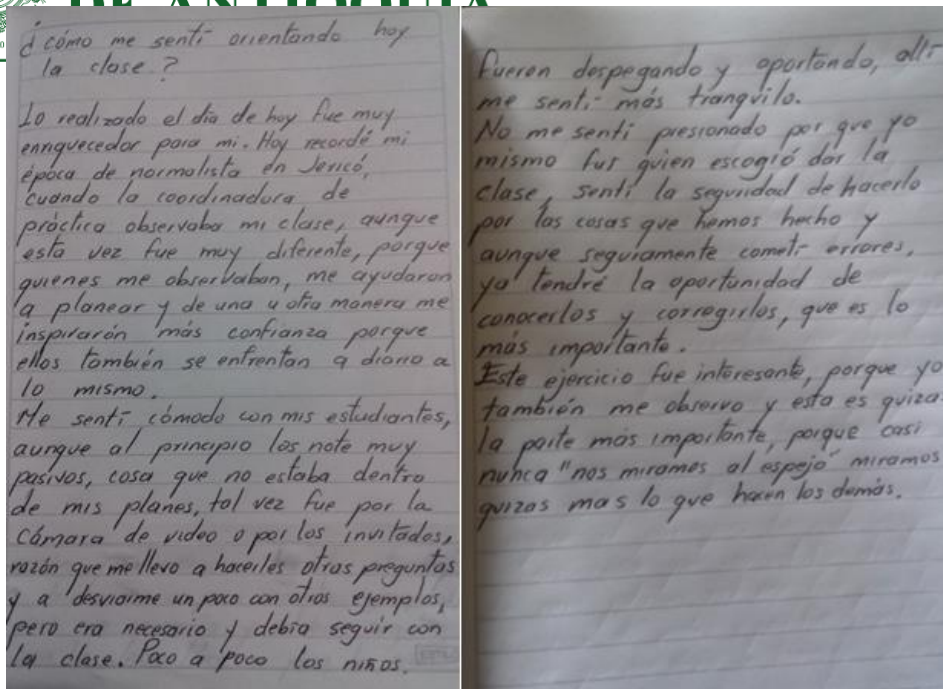 DE ANTIOQUIA
¿cómo me sentí orientando hoy
la clase?
Lo realizado el día de hoy fue muy
enriquecedor para mi. Hoy recordé mi
época de normalista en Jericó,
cuando la coordinadora de
práctica observaba mi clase, aunque
esta vez fue muy diferente, porque
quienes me observaban, me ayudaron
a planear y de una u otra manera me
inspirarón más confianza porque
ellos también se enfrentan a diario a
lo mismo.
Me sentí cómodo con mis estudiantes,
aunque al principio los note muy
pasivos, cosa que no estaba dentro
de mis planes, tal vez fue por la
cámara de video o por los invitados,
razón que me llevo a hacerles otras preguntas
y a desviarme un poco con otros ejemplos,
pero era necesario y debía seguir con
la clase. Poco a poco los niños.
fueron despegando y aportando, allí
me sentí más tranquilo.
No me sentí presionado por que yo
mismo fui quien escogió dar la
clase, sentí la seguridad de hacerlo
por las cosas que hemos hecho y
aunque seguramente cometí errores,
ya tendré la oportunidad de
conocerlos y corregirlos, que es lo
más importante.
Este ejercicio fue interesante, porque yo
también me observo y esta es quiza
la parte más importante, porque casi
nunca "nos miramos al espejo" miramos
quizas mas lo que hacen los demás.